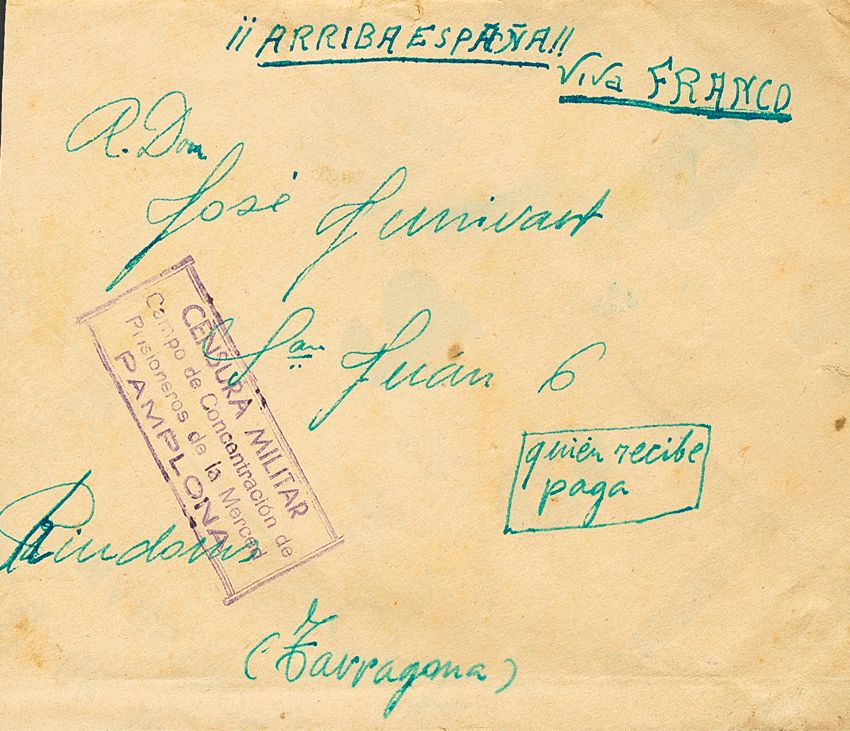 ¡¡ARRIBA ESPAÑA!!
Viva FRANCO
R. Don
José Junivart
San Juán 6
CENSURA MILITAR
Campo de Concentración de
Prisioneros de la Merced
PAMPLONA
quién recibe
paga
Riudoms
(Tarragona)